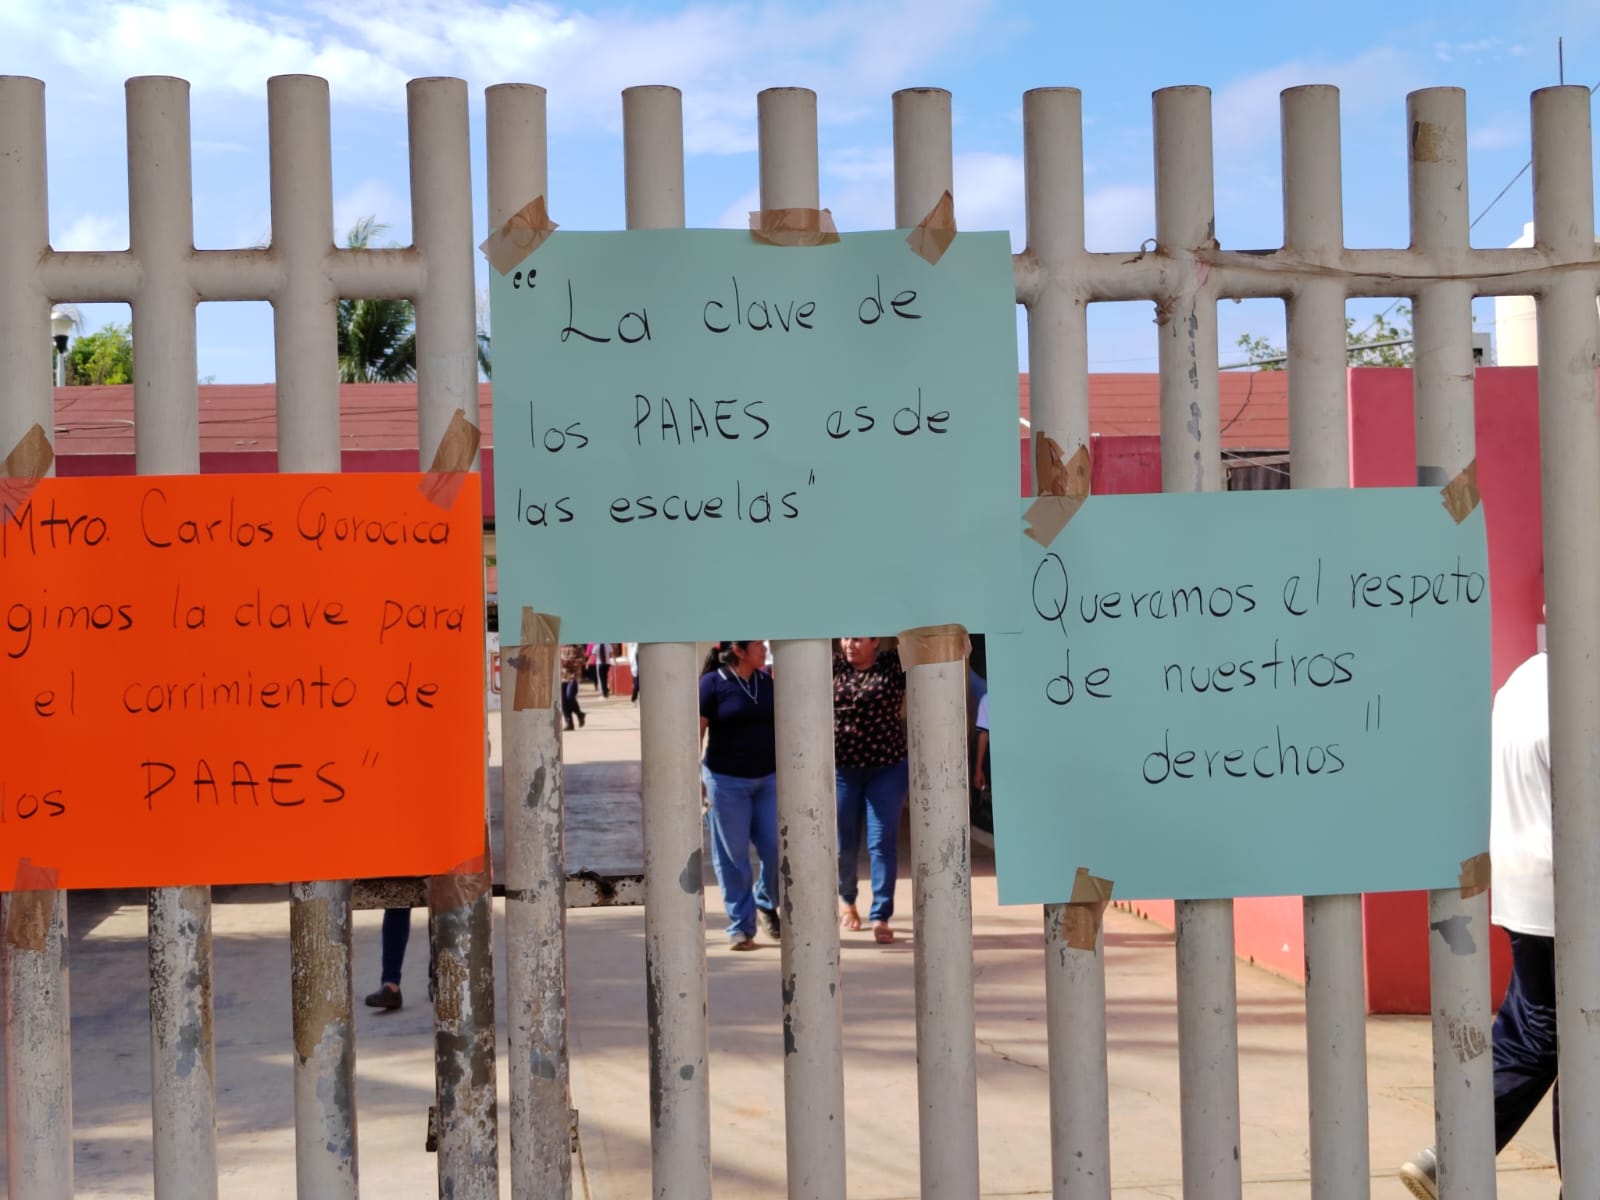 Mtro. Carlos Gorocica
gimos la clave para
el corrimiento de
los PAAES"
"La clave de
los PAAES es de
las escuelas"
Queremos el respeto
de nuestros
derechos"